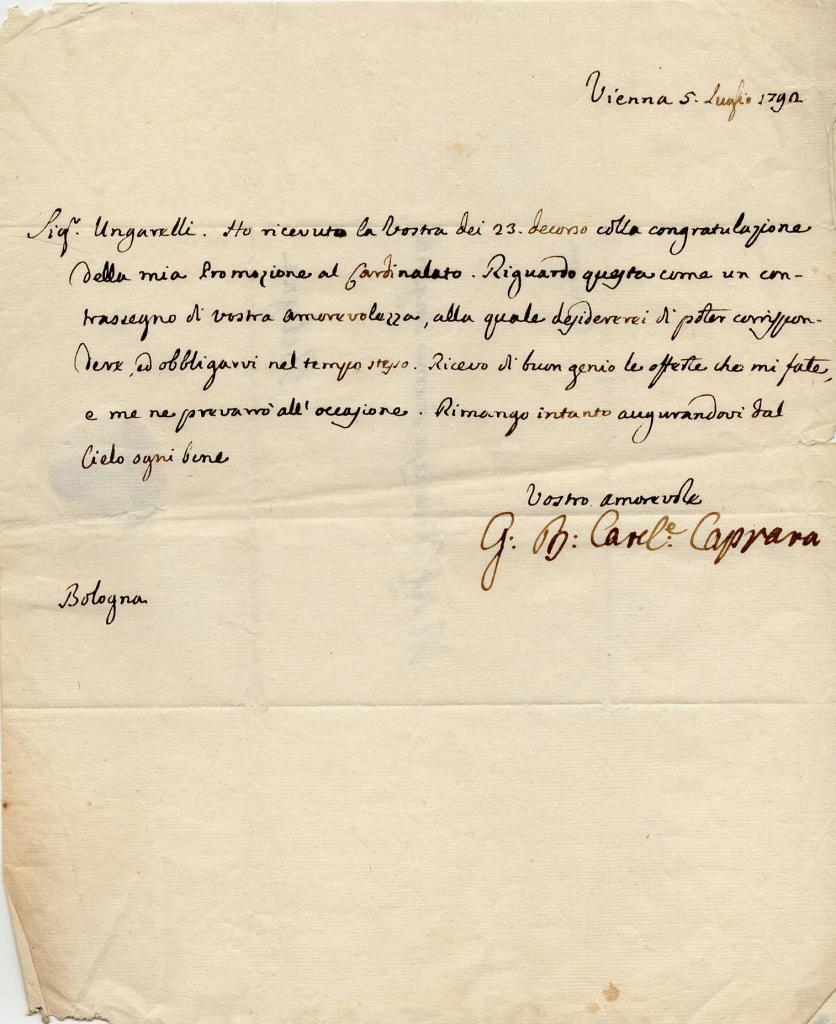 Vienna 5. Luglio 1792
Sigr. Ungarelli. Ho ricevuto la Vostra dei 23. decorso colla congratulazione
della mia Promozione al Cardinalato. Riguardo questa come un con-
trassegno di vostra amorevolezza, alla quale desidererei di poter corrispon-
dere, ed obbligarvi nel tempo stesso. Ricevo di buon genio le offerte che mi fate,
e me ne prevarrò all'occasione. Rimango intanto augurandovi dal
Cielo ogni bene
Vostro amorevole
G: B: Carđle: Caprara
Bologna